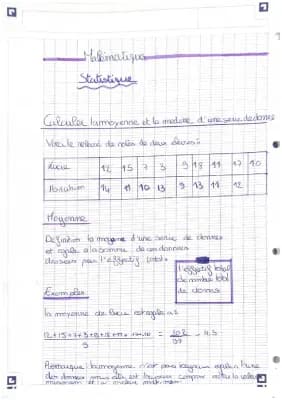 Mathématique
Statistique
Calculer la moyenne et la mediane d'une serie de donnes
Voici le relevé de notes de deux élèves :
Lucie 12 15 7 3 9 18 11 17 10
Abraham 14 11 10 13 9 13 11 12
Moyenne
Definition la moyenne d'une serie de donnes
et egale a la somme de ces donnes
diviser par l'effectif total.
l'effectif total
de nombre total
de donnes
Exemples
la moyenne de lucie est egale a :
12+15+7+3+9+18+11+17+10
9
Remarque : la moyenne n'est pas toujours egale a l'une
des donnes mais elle est toujours compris entre la valeur